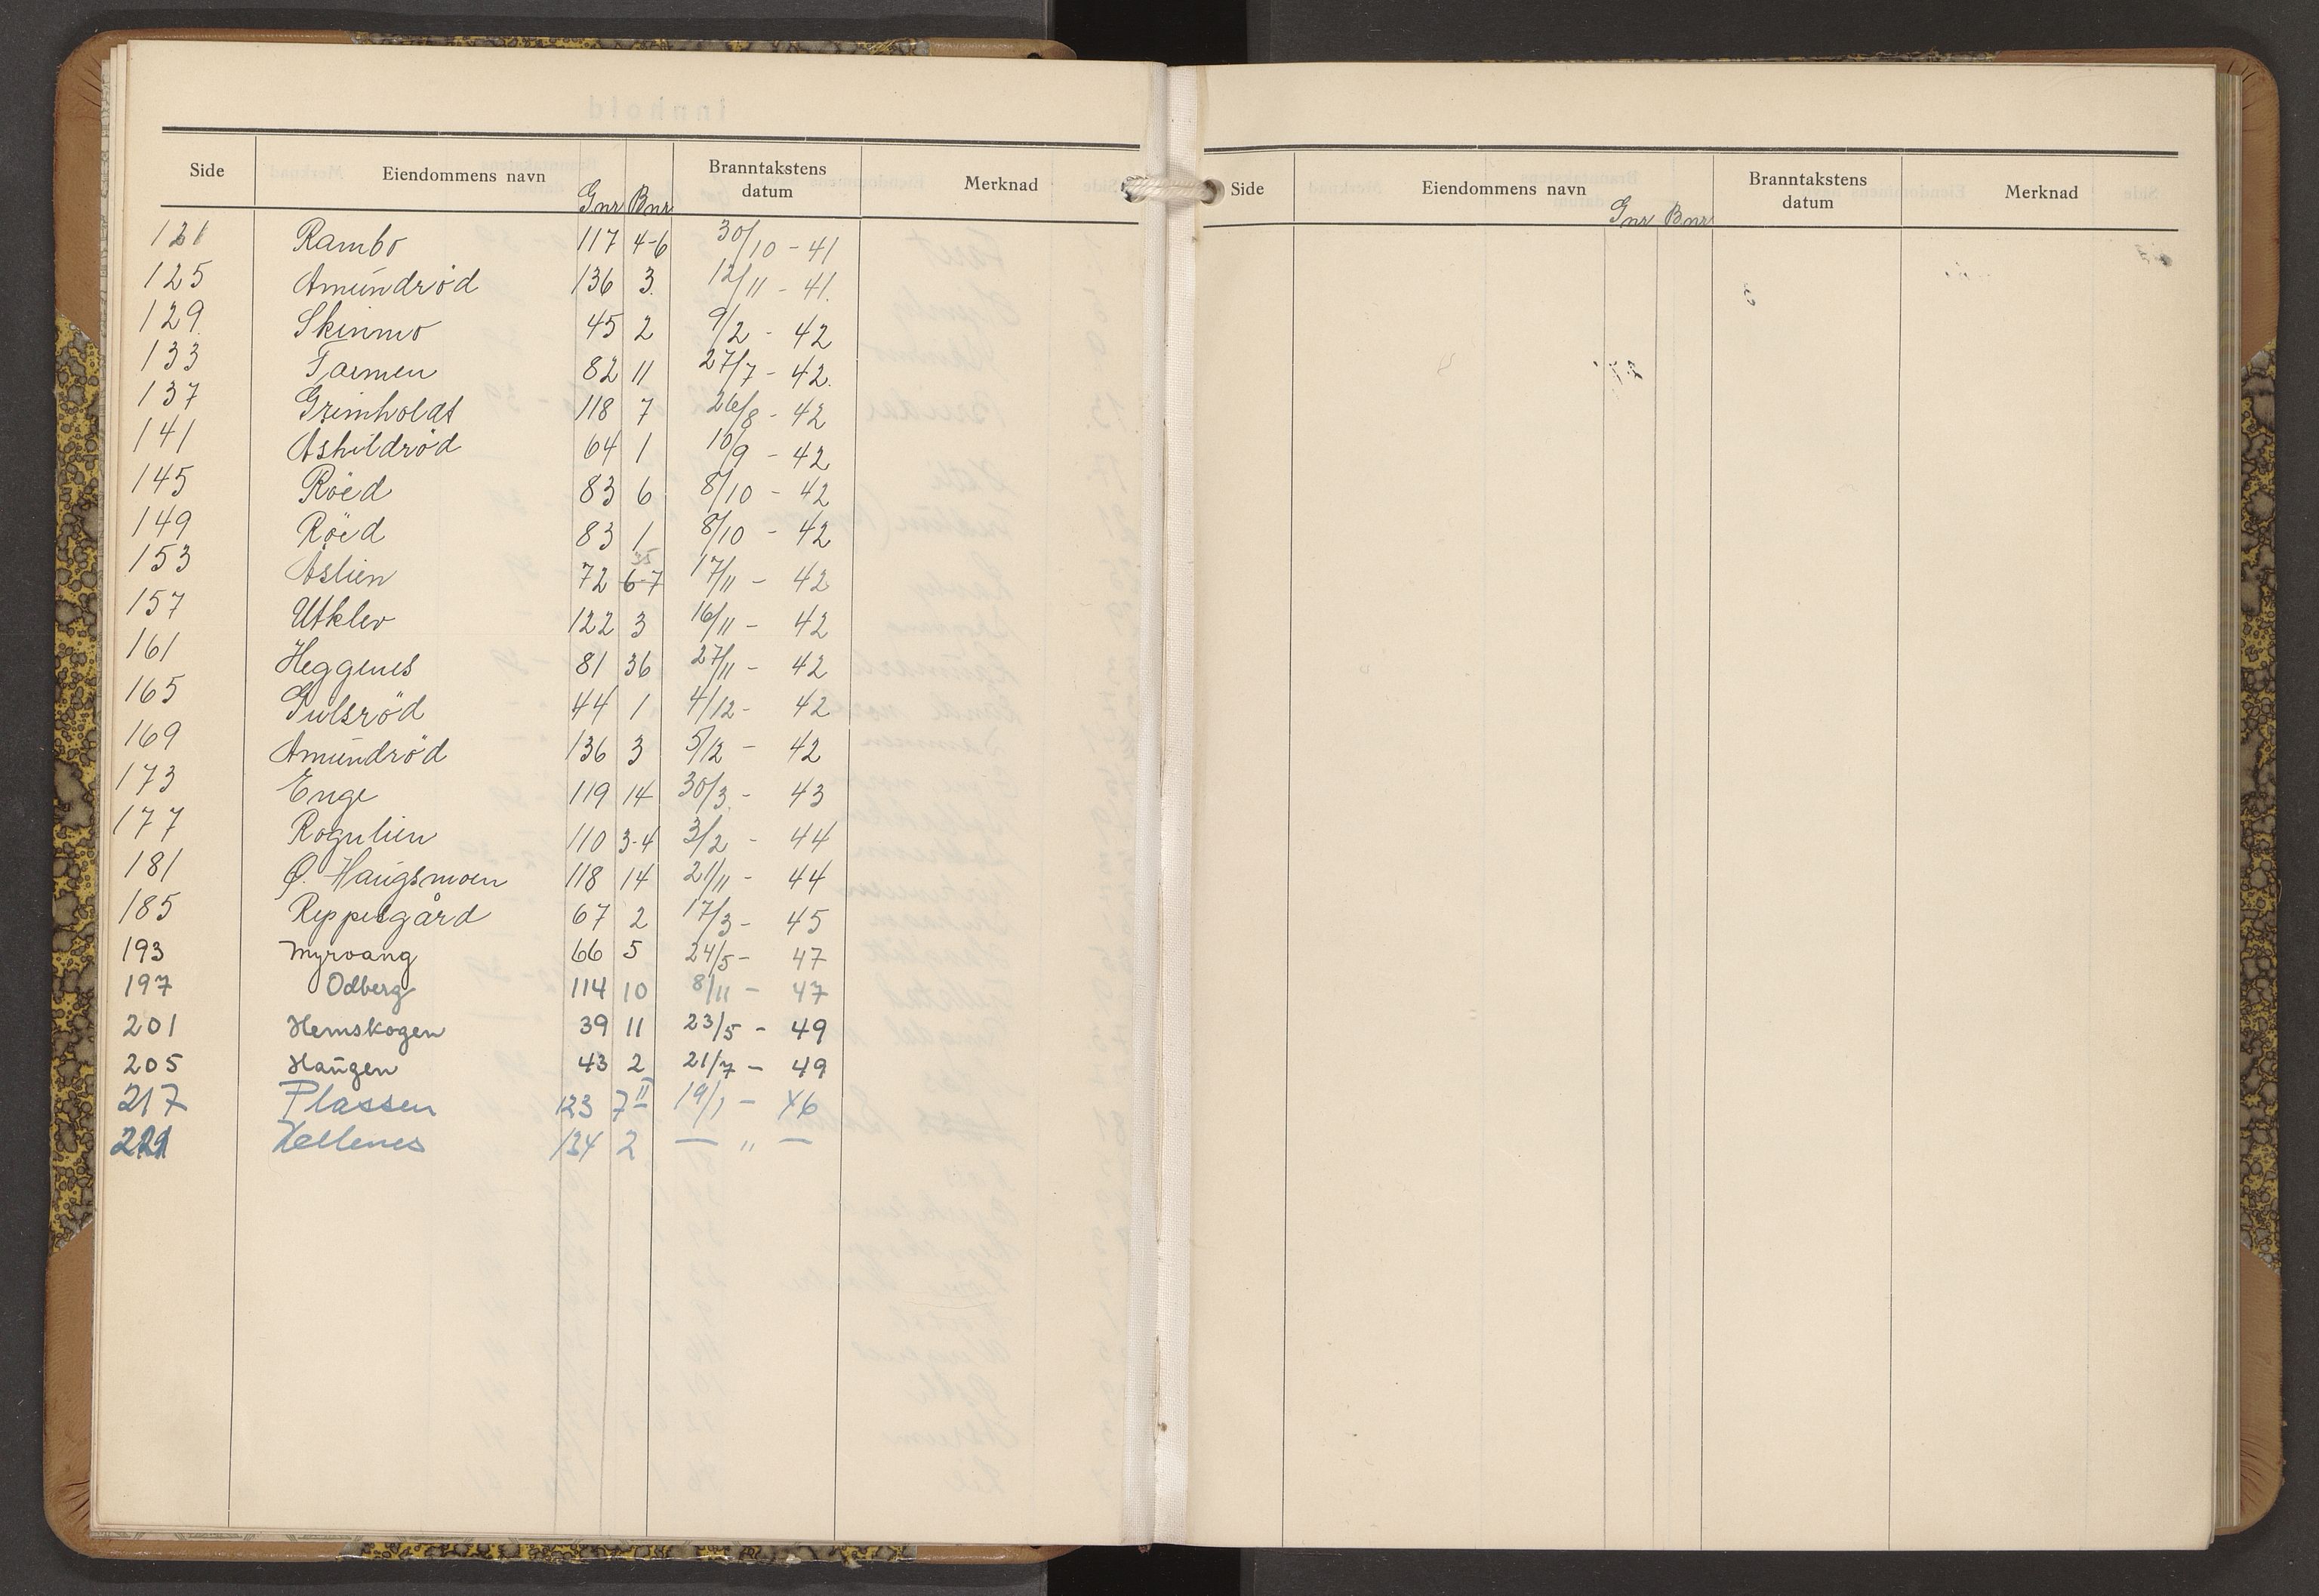 Side Eiendommens navn Gnr Bnr Branntakstens datum Merknad
121 Rambo 117 4-6 30/10 - 41
125 Amundröd 136 3. 12/11 - 41.
129. Skinmo 45 2 9/2 - 42
133 Tarmen 82 11 27/7 - 42.
137 Grimholdt 118 7 26/8 - 42
141 Ashildröd 64 1 10/9 - 42
145 Röed 83 6 8/10 - 42
149 Röed 83 1 8/10 - 42
153 Åslien 72 6-7 35 17/11 - 42
157 Utklev 122 3 16/11 - 42
161 Heggenes 81 36 27/11 - 42
165 Gulsröd 44 1 4/12 - 42
169 Amundröd 136 3 5/12 - 42
173 Enge 119 14 30/3 - 43
177 Rognlien 110 3-4 3/2 - 44
181 Ø. Haugsmoen 118 14 21/11 - 44
185 Reppesgård 67 2 17/3 - 45
193 Myrvang 66 5 24/5 - 47
197 Odberg 114 10 8/11 - 47
201 Hemskogen 39 11 23/5 - 49
205 Haugen 43 2 21/7 - 49
217 Plassen 123 7 II 19/1 - 46
221 Hellenes 134 2 — " —
Side Eiendommens navn Gnr Bnr Branntakstens datum Merknad